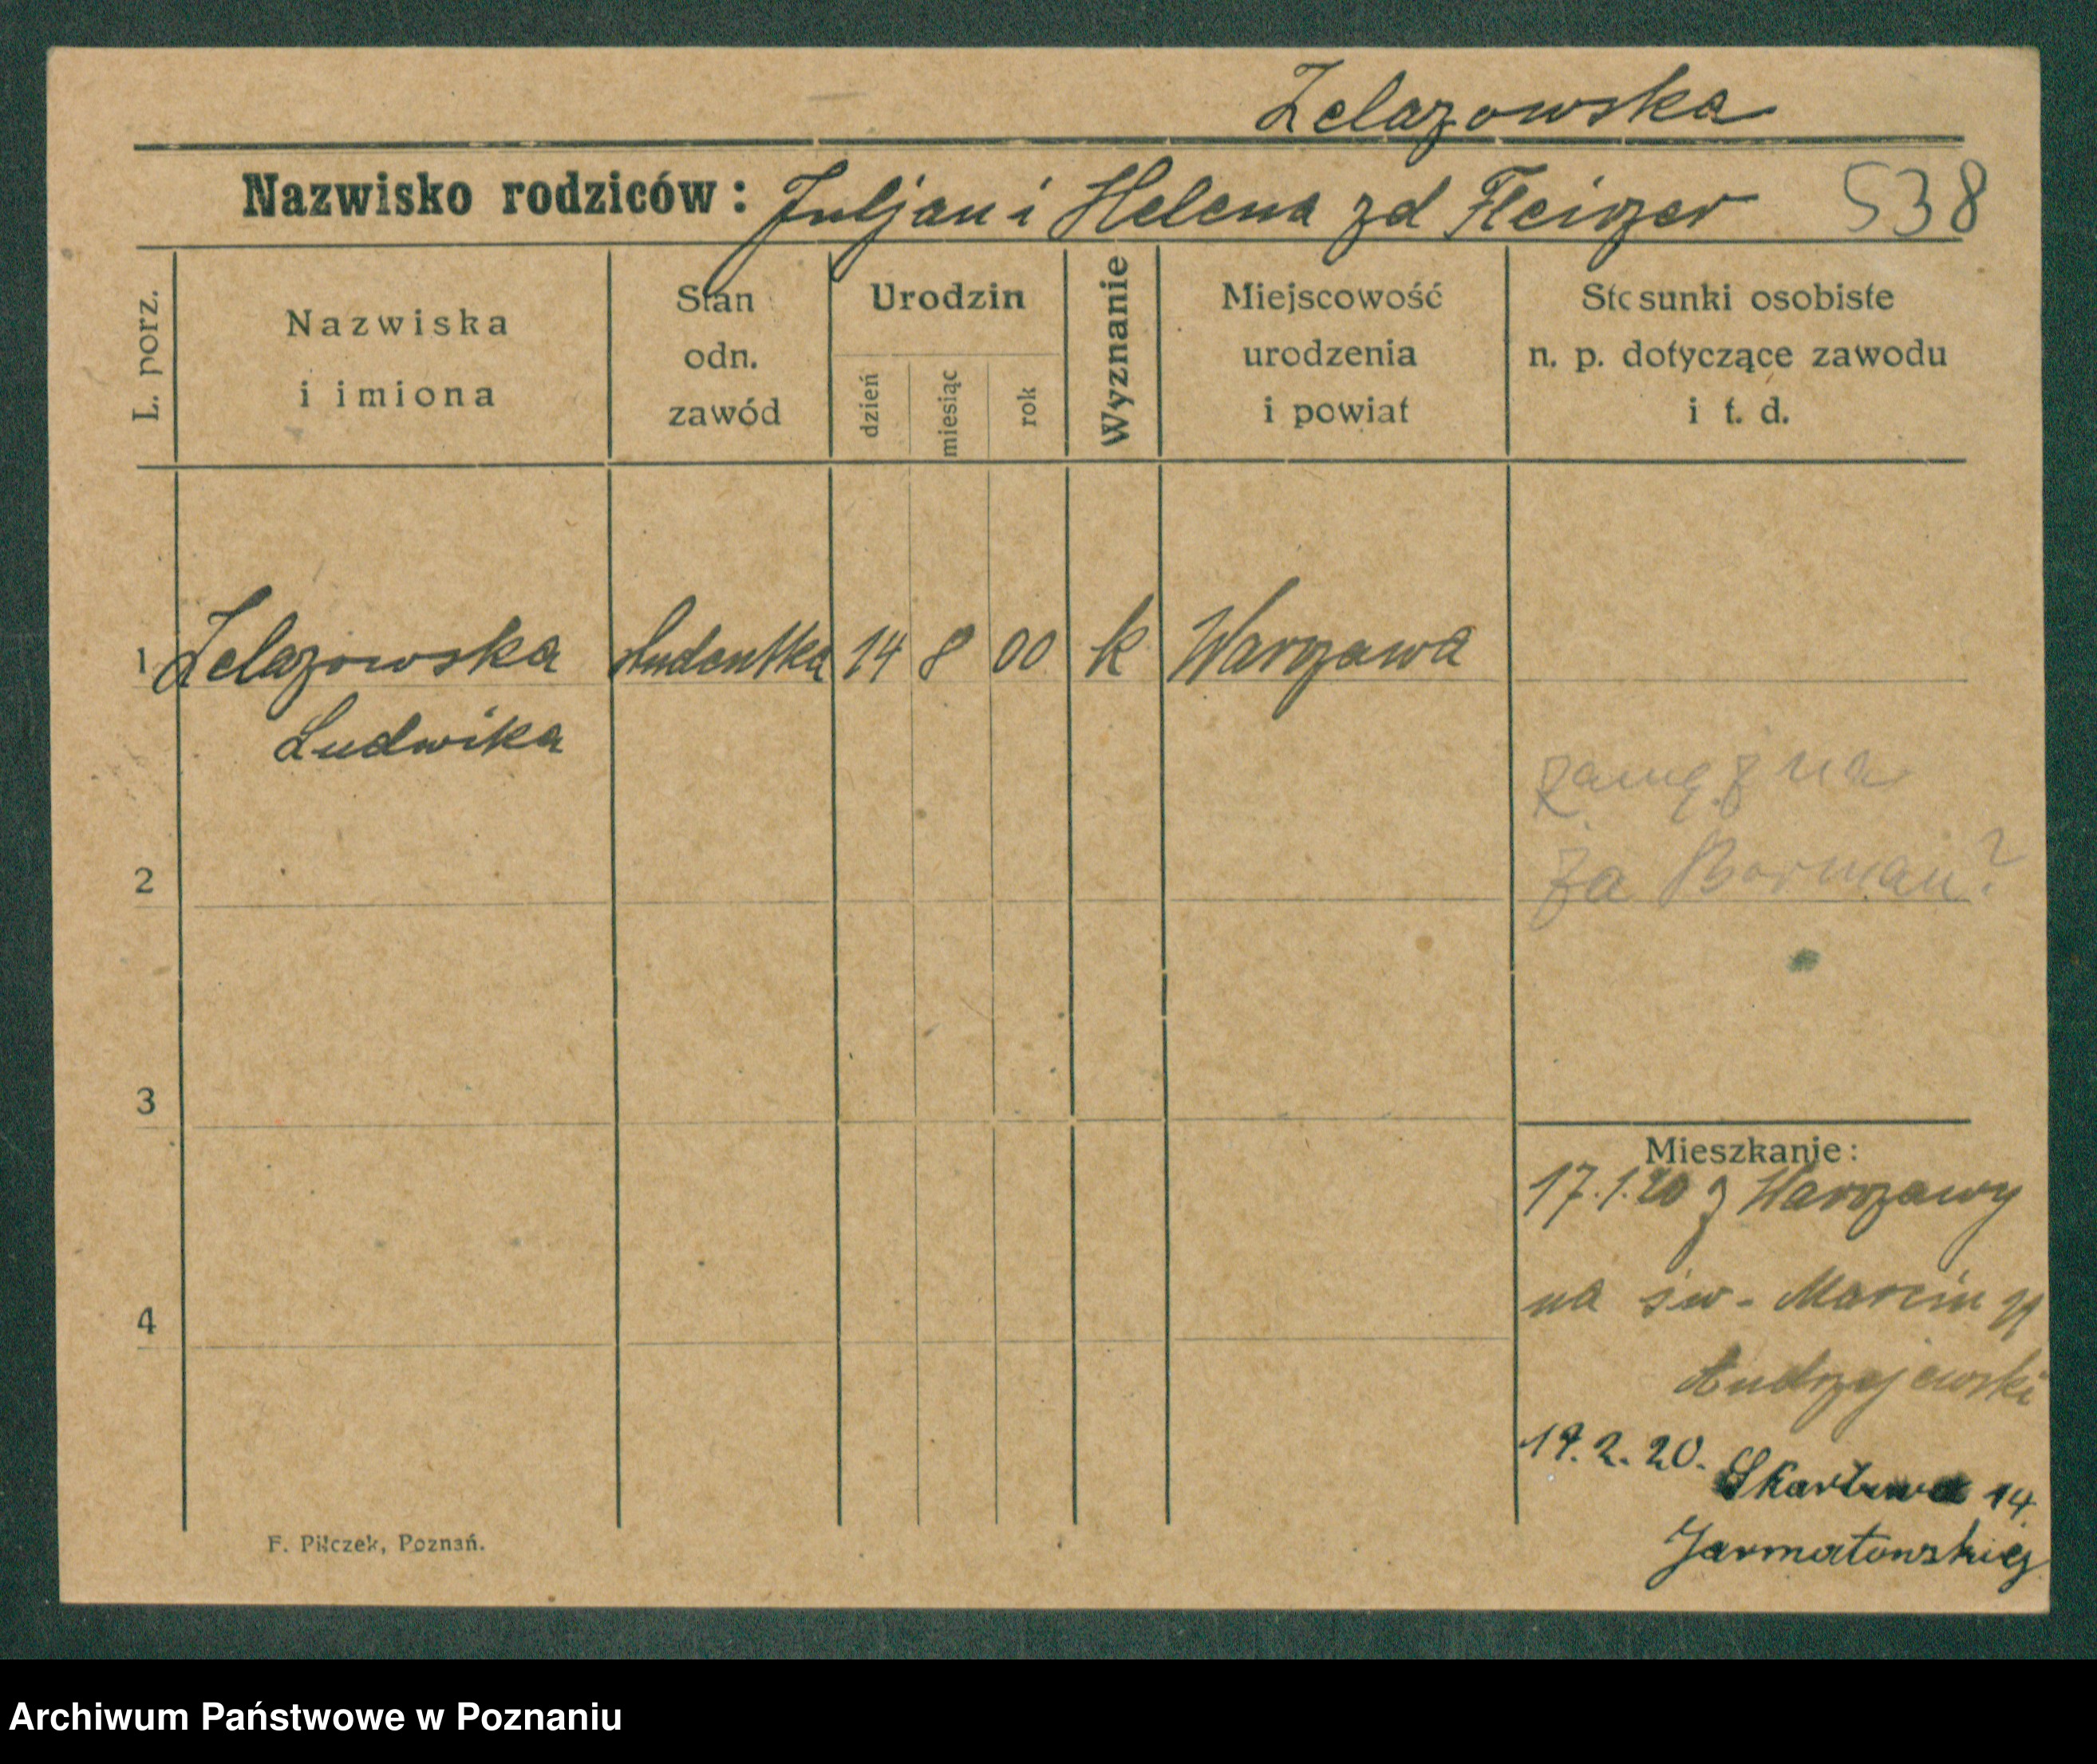 Zelazowska
Nazwisko rodziców: Juljan i Helena zd Fleiszer 538
L. porz.
Nazwiska
i imiona
Stan
odn.
zawód
Urodzin
dzień
miesiąc
rok
Wyznanie
Miejscowość
urodzenia
i powiat
Stosunki osobiste
n. p. dotyczące zawodu
i t. d.
1 Zelazowska studentka 14 8 00 k Warszawa
Ludwika
zamężna
2
za Borman?
3
Mieszkanie:
17.1.20 z Warszawy
na św. Marcin
4
Andrzejewski
19.2.20. 14
Jarmatowskiej
F. Piłczek, Poznań.
Archiwum Państwowe w Poznaniu